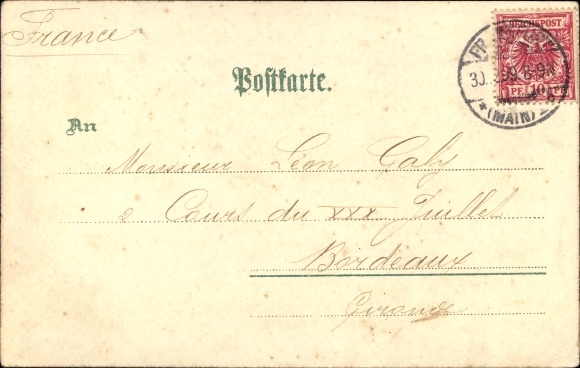 France
REICHSPOST
PF 10 PF
30. 99 8-9N
* (MAIN)
Postkarte.
An
Monsieur Léon Galy
2 Cours du XXX Juillet
Bordeaux
Gironde